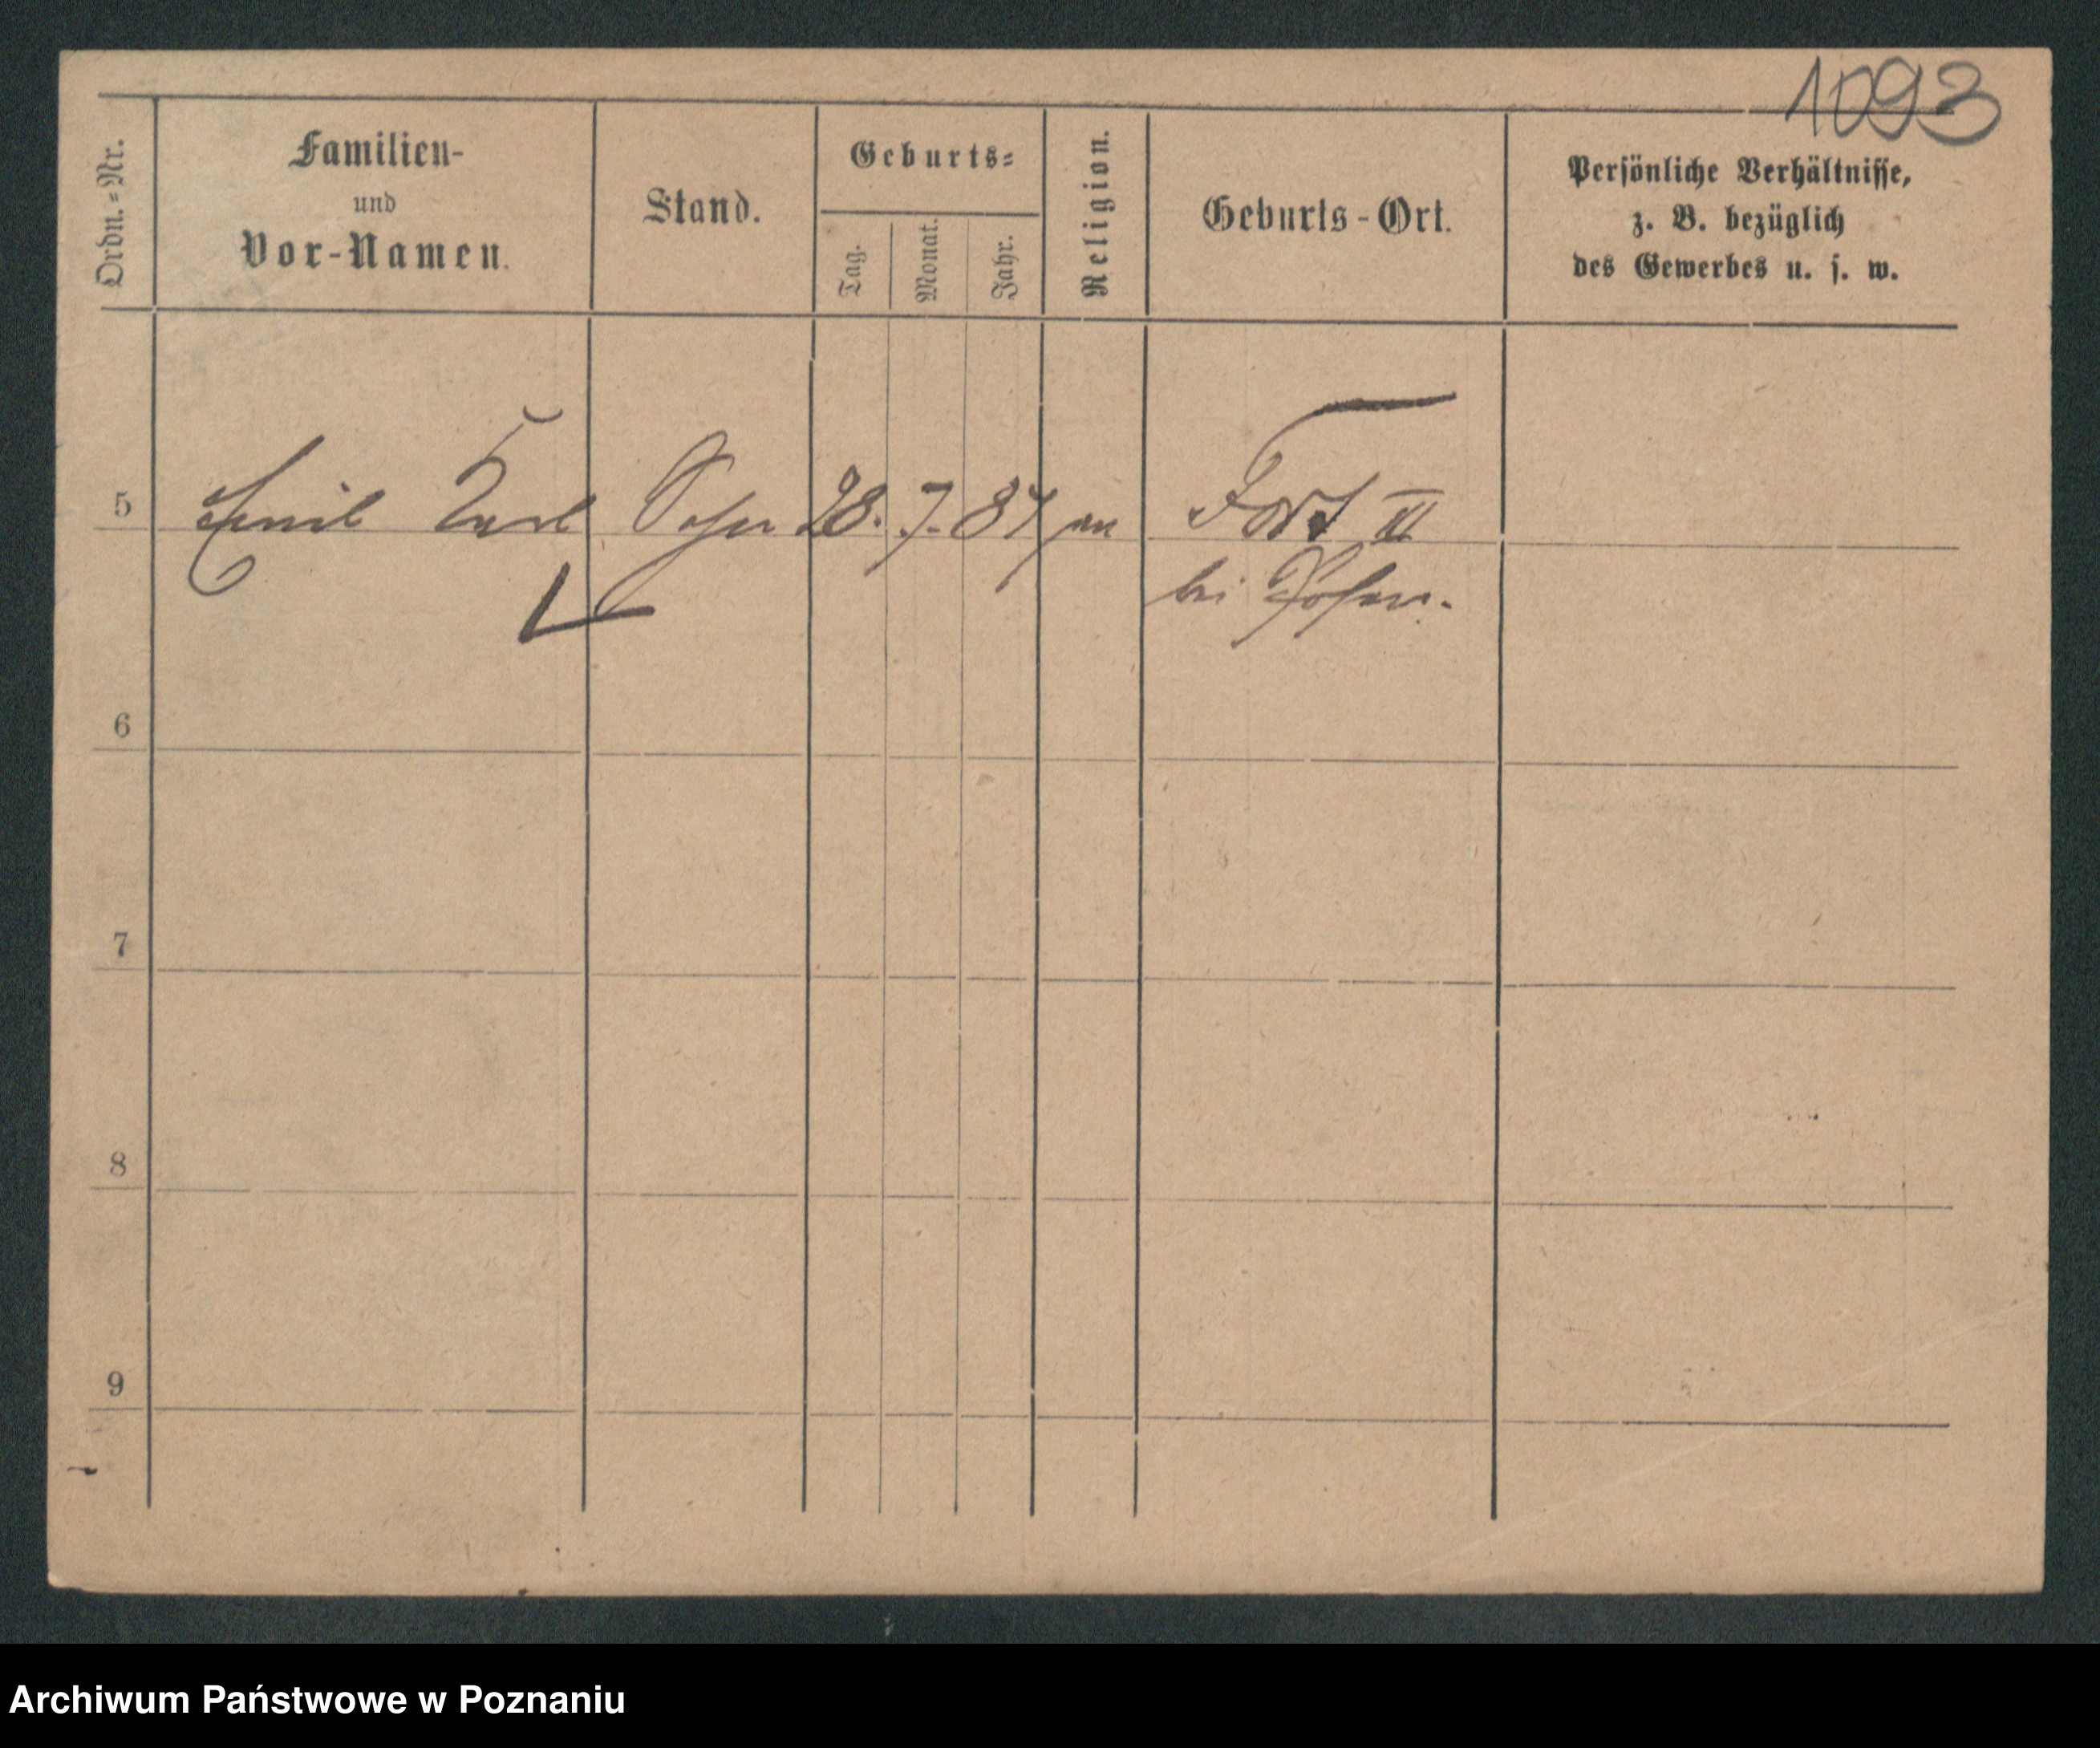 1093
Ordn.-Nr.
Familien-
und
Vor-Namen.
Stand.
Geburts-
Tag.
Monat.
Jahr.
Religion.
Geburts-Ort.
Persönliche Verhältnisse,
z. B. bezüglich
des Gewerbes u. s. w.
5 Emil Karl Sohn 28. 7. 87 Fort III
bei Posen.
6
7
8
9
Archiwum Państwowe w Poznaniu